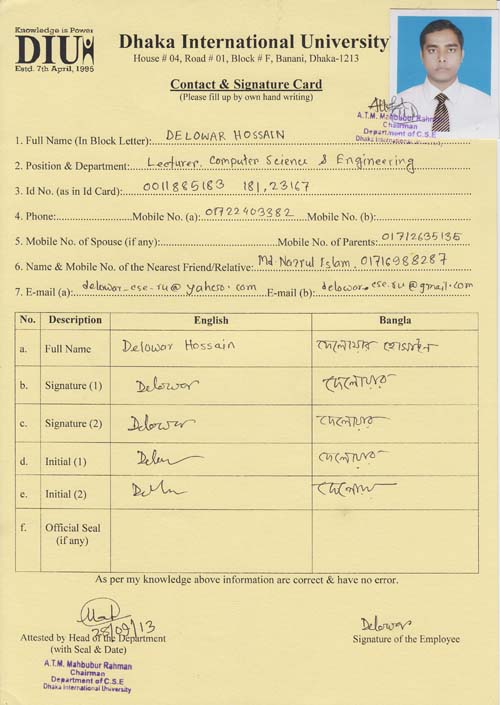 Knowledge is Power
DIU
Estd. 7th April, 1995
Dhaka International University
House # 04, Road # 01, Block # F, Banani, Dhaka-1213
Contact & Signature Card
(Please fill up by own hand writing)
A.T.M. Mahbubur Rahm
Chairman
Department of C.S.E
Dhaka International University
1. Full Name (In Block Letter): DELOWAR HOSSAIN
2. Position & Department: Lecturer, Computer Science & Engineering
3. Id No. (as in Id Card): 0011885183 181, 23167
4. Phone: Mobile No. (a): 01722403382 Mobile No. (b):
5. Mobile No. of Spouse (if any): Mobile No. of Parents: 01712635135
6. Name & Mobile No. of the Nearest Friend/Relative: Md. Nazrul Islam, 01716988287
7. E-mail (a): delowar_cse_ru@yahoo.com E-mail (b): delowar.cse.ru@gmail.com
No. Description English Bangla
a. Full Name Delowar Hossain দেলোয়ার হোসাইন
b. Signature (1) Delowar দেলোয়ার
c. Signature (2) Delowar দেলোয়ার
d. Initial (1) দেলোয়ার
e. Initial (2)
f. Official Seal
(if any)
As per my knowledge above information are correct & have no error.
28/09/13
Delowar
Attested by Head of the Department
Signature of the Employee
(with Seal & Date)
A.T.M. Mahbubur Rahman
Chairman
Department of C.S.E
Dhaka International University